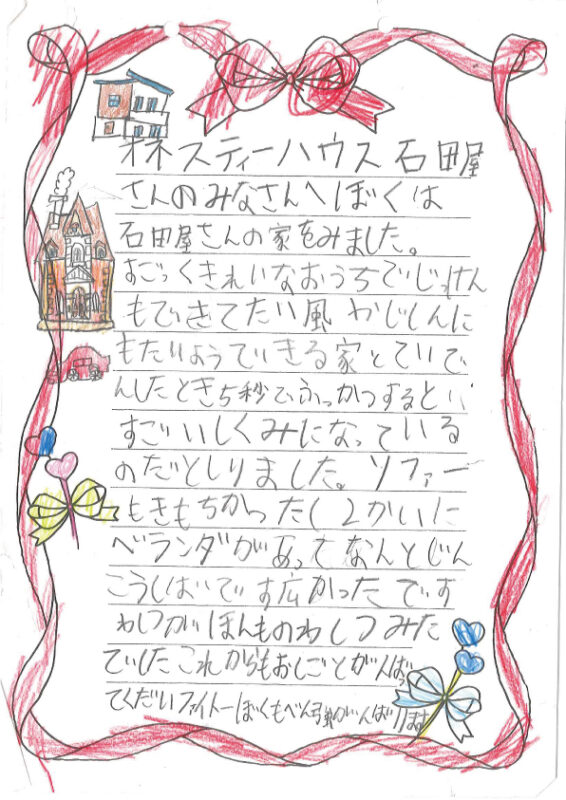 オネスティーハウス石田屋
さんのみなさんへぼくは
石田屋さんの家をみました。
すごっくきれいなおうちでじっけん
もできてたい風やじしんに
もたいようできる家とていで
んしたとき5秒でふっかつするとい
すごいしくみになっている
のだとしりました。ソファー
もきもちかったし2かいに
ベランダがあってなんとじん
こうしばいです広かったです
わしつがほんものわしつみた
でしたこれからもおしごとがんばっ
てくだいファイトーぼくもべん強がんばります